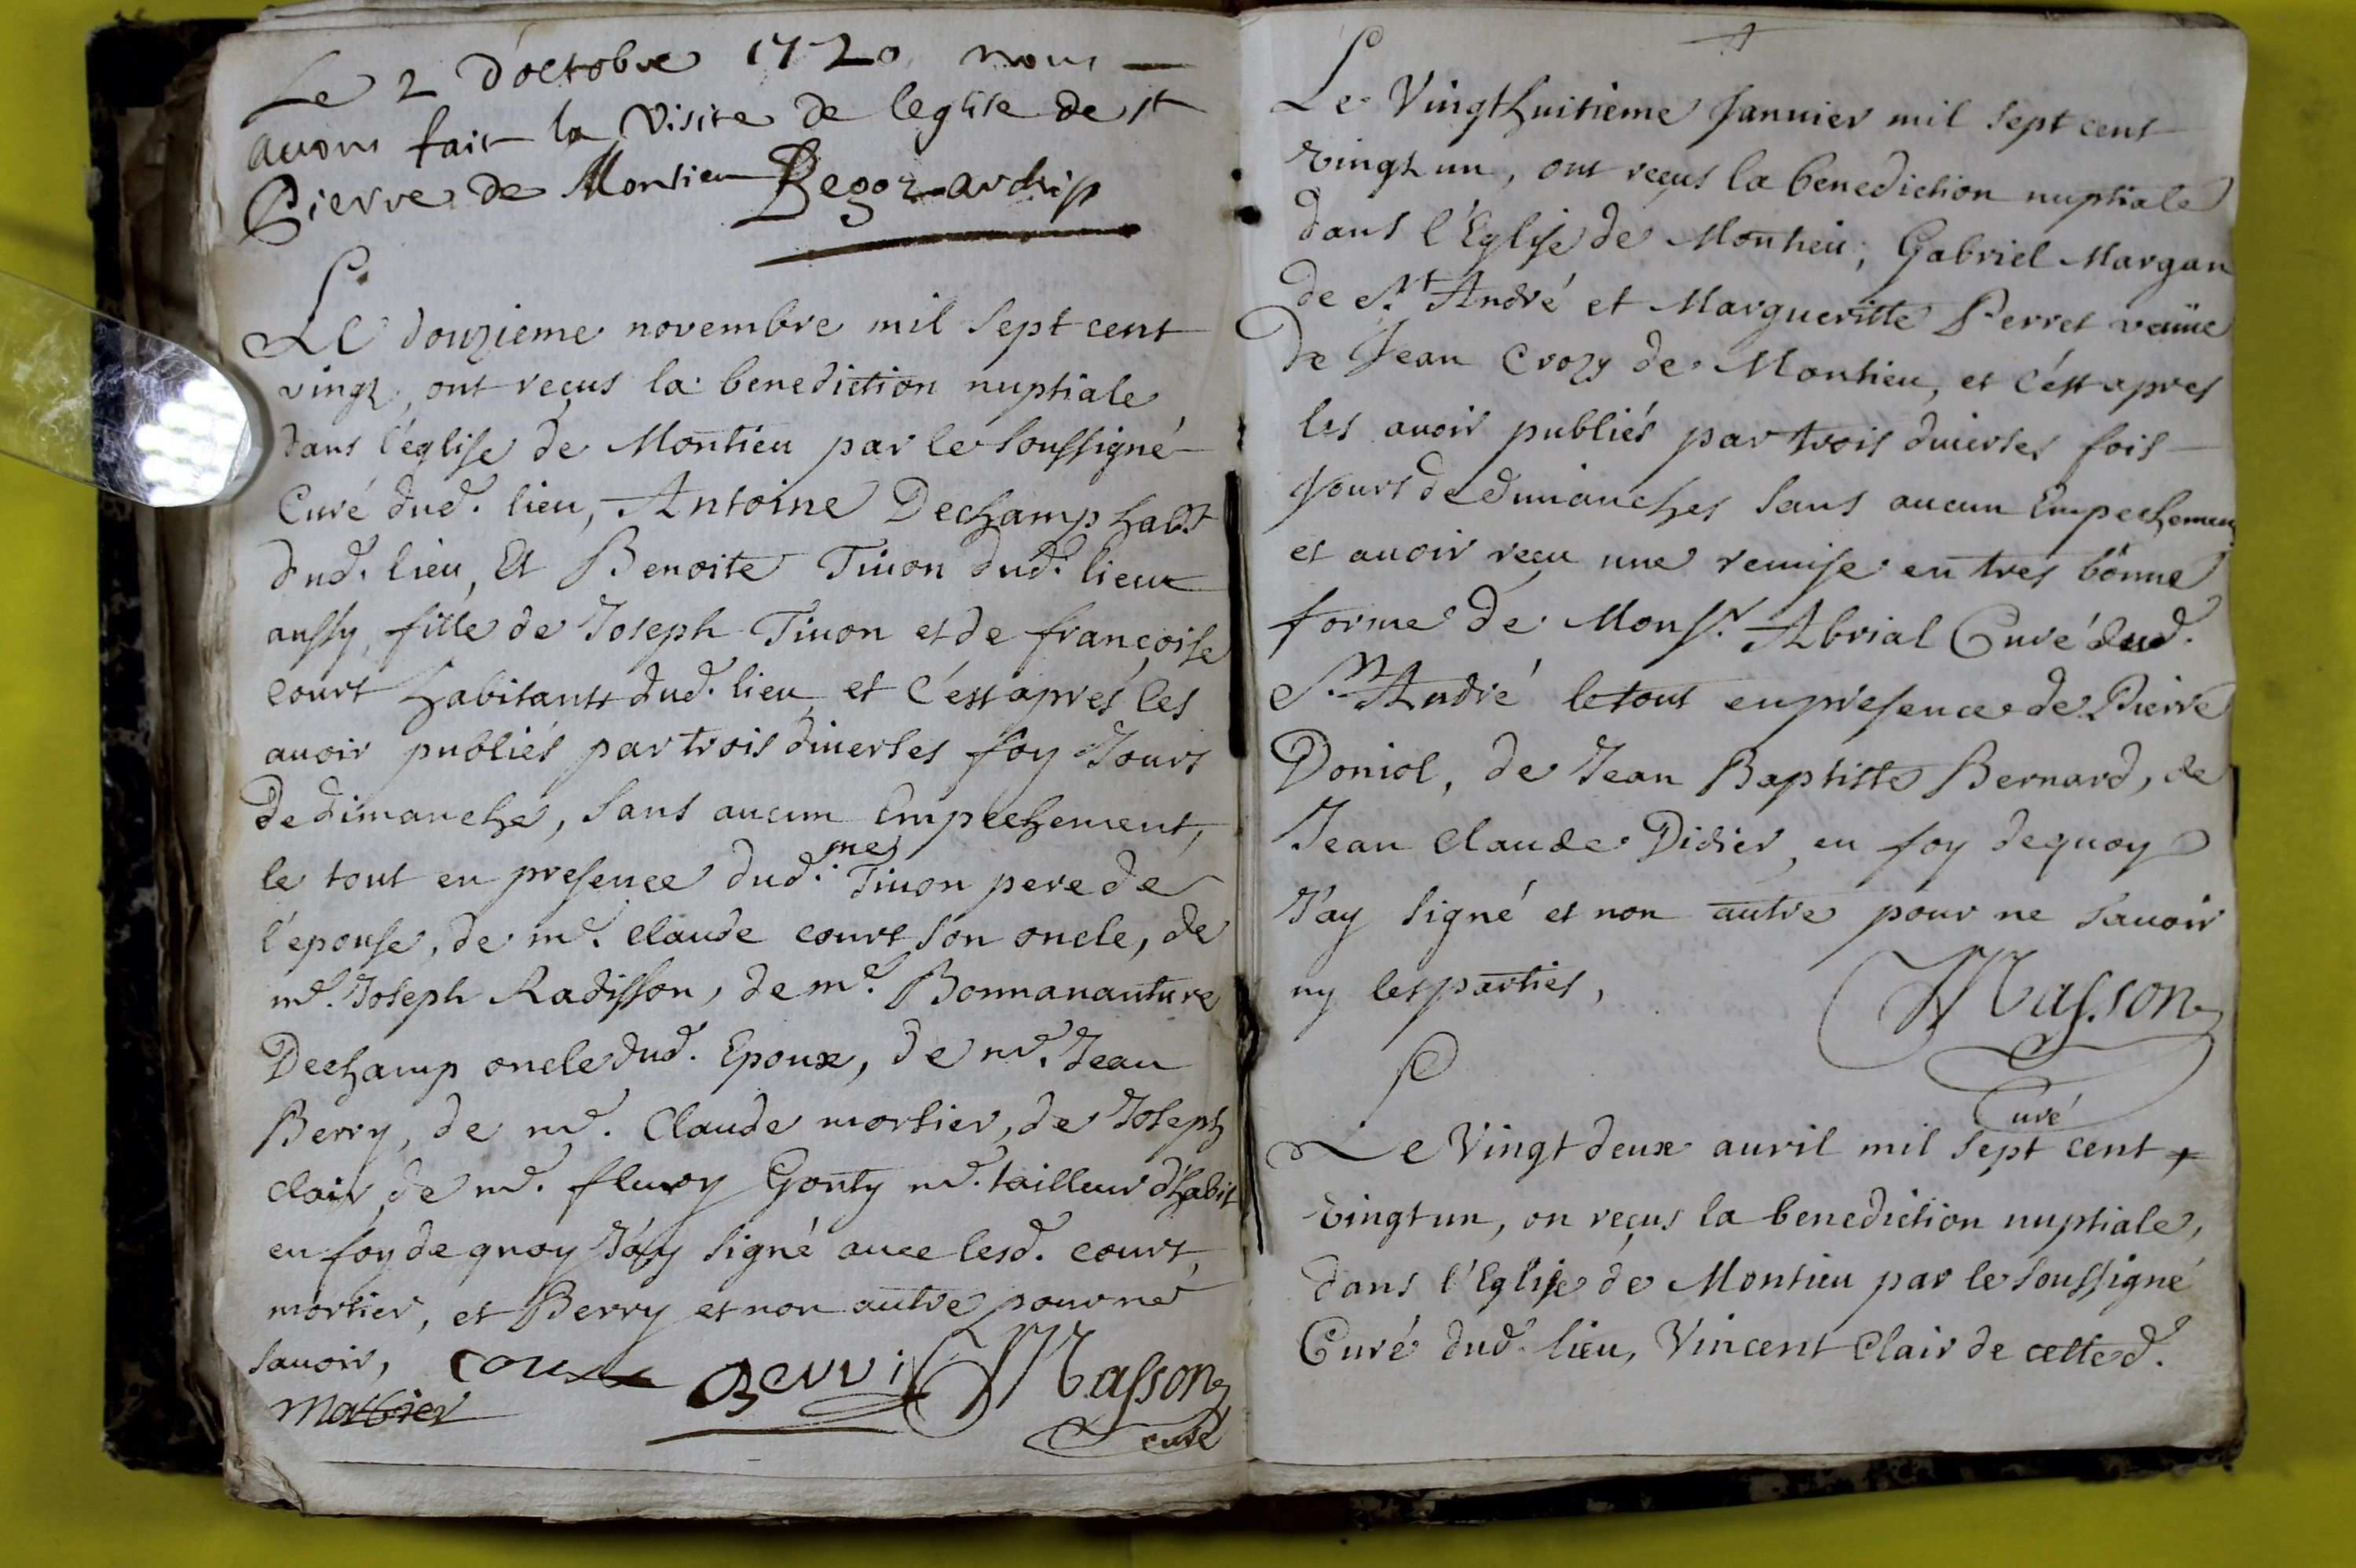 Le 2 d'octobre 1720 nous
avons fait la visite de leglise de st
Pierre de Montieu Begoz archip
Le douzieme novembre mil sept cent
vingt, ont reçus la benediction nuptiale
dans l'église de Montieu par le soussigné
Curé dud. lieu, Antoine Dechamp habt
dud. lieu, Et Benoite Tivon dud. lieu
aussy, fille de Joseph Tivon et de françoise
court habitants dud. lieu et c'est aprés les
avoir publiés par trois diverses foy Jours
De dimanche, sans aucun Empechement,
le tout en presence dud. me Tivon pere de
l'epouse, de me. claude court son oncle, de
me. Joseph Radisson, de me. Bonnananture
Dechamp oncle dud. Epoux, de me. Jean
Berry, de me. Claude mortier, de Joseph
clair, de me. fleury Gonty me. tailleur d'habit
en foy de quoy J'ay signé avec lesd. court,
mortier, et Berry et non autre pour ne
savoir, court Berri Masson
Mortier curé
Le Vingt huitieme Janvier mil sept cent
vingt un, ont reçus la benediction nuptiale
dans l'Eglise de Montieu, Gabriel Margan
de St André et Margueritte Perret veüue
De Jean Crozy de Montieu, et c'est apres
les avoir publiés par trois diverses fois
Jours de dimanches sans aucun Empechemen
et avoir reçu une remise en tres bonne
forme de Monsr. Abrial Curé dud.
St André le tout en presence de Pierre
Doniol, de Jean Baptiste Bernard, de
Jean claude Didier, en foy dequoy
J'ay signé et non autre pour ne savoir
ny les parties, Masson
Curé
Le Vingt deux avril mil sept cent
vingt un, on reçus la benediction nuptiale,
dans l'Eglise de Montieu par le soussigné
Curé dud. lieu, Vincent Clair de cetted.